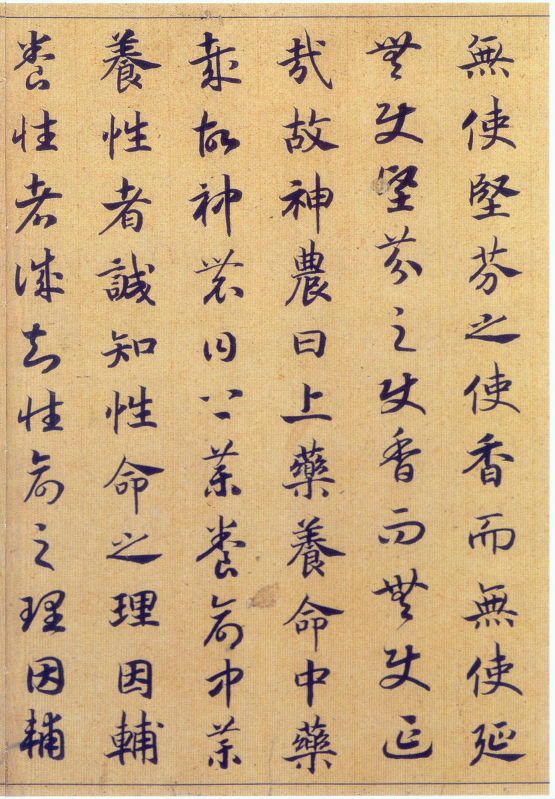 無使堅芬之使香而無使延
無使堅芬之使香而無使延
哉故神農曰上藥養命中藥
哉故神農曰上藥養命中藥
養性者誠知性命之理因輔
養性者誠知性命之理因輔